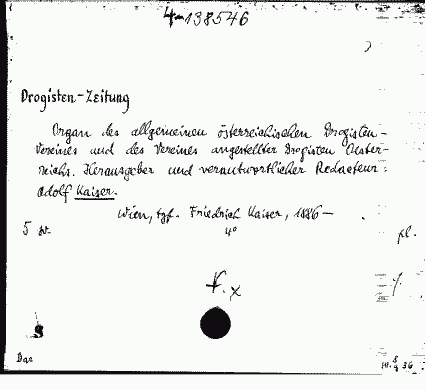 4-138546
Drogisten-Zeitung
Organ des allgemeinen österreichischen Drogisten-
Vereines und des Vereines angestellter Drogisten Oester-
reichs. Herausgeber und verantwortlicher Redacteur:
Adolf Kaiser.
Wien, typ. Friedrich Kaiser, 1886-
5 w. 4° pl.
Das